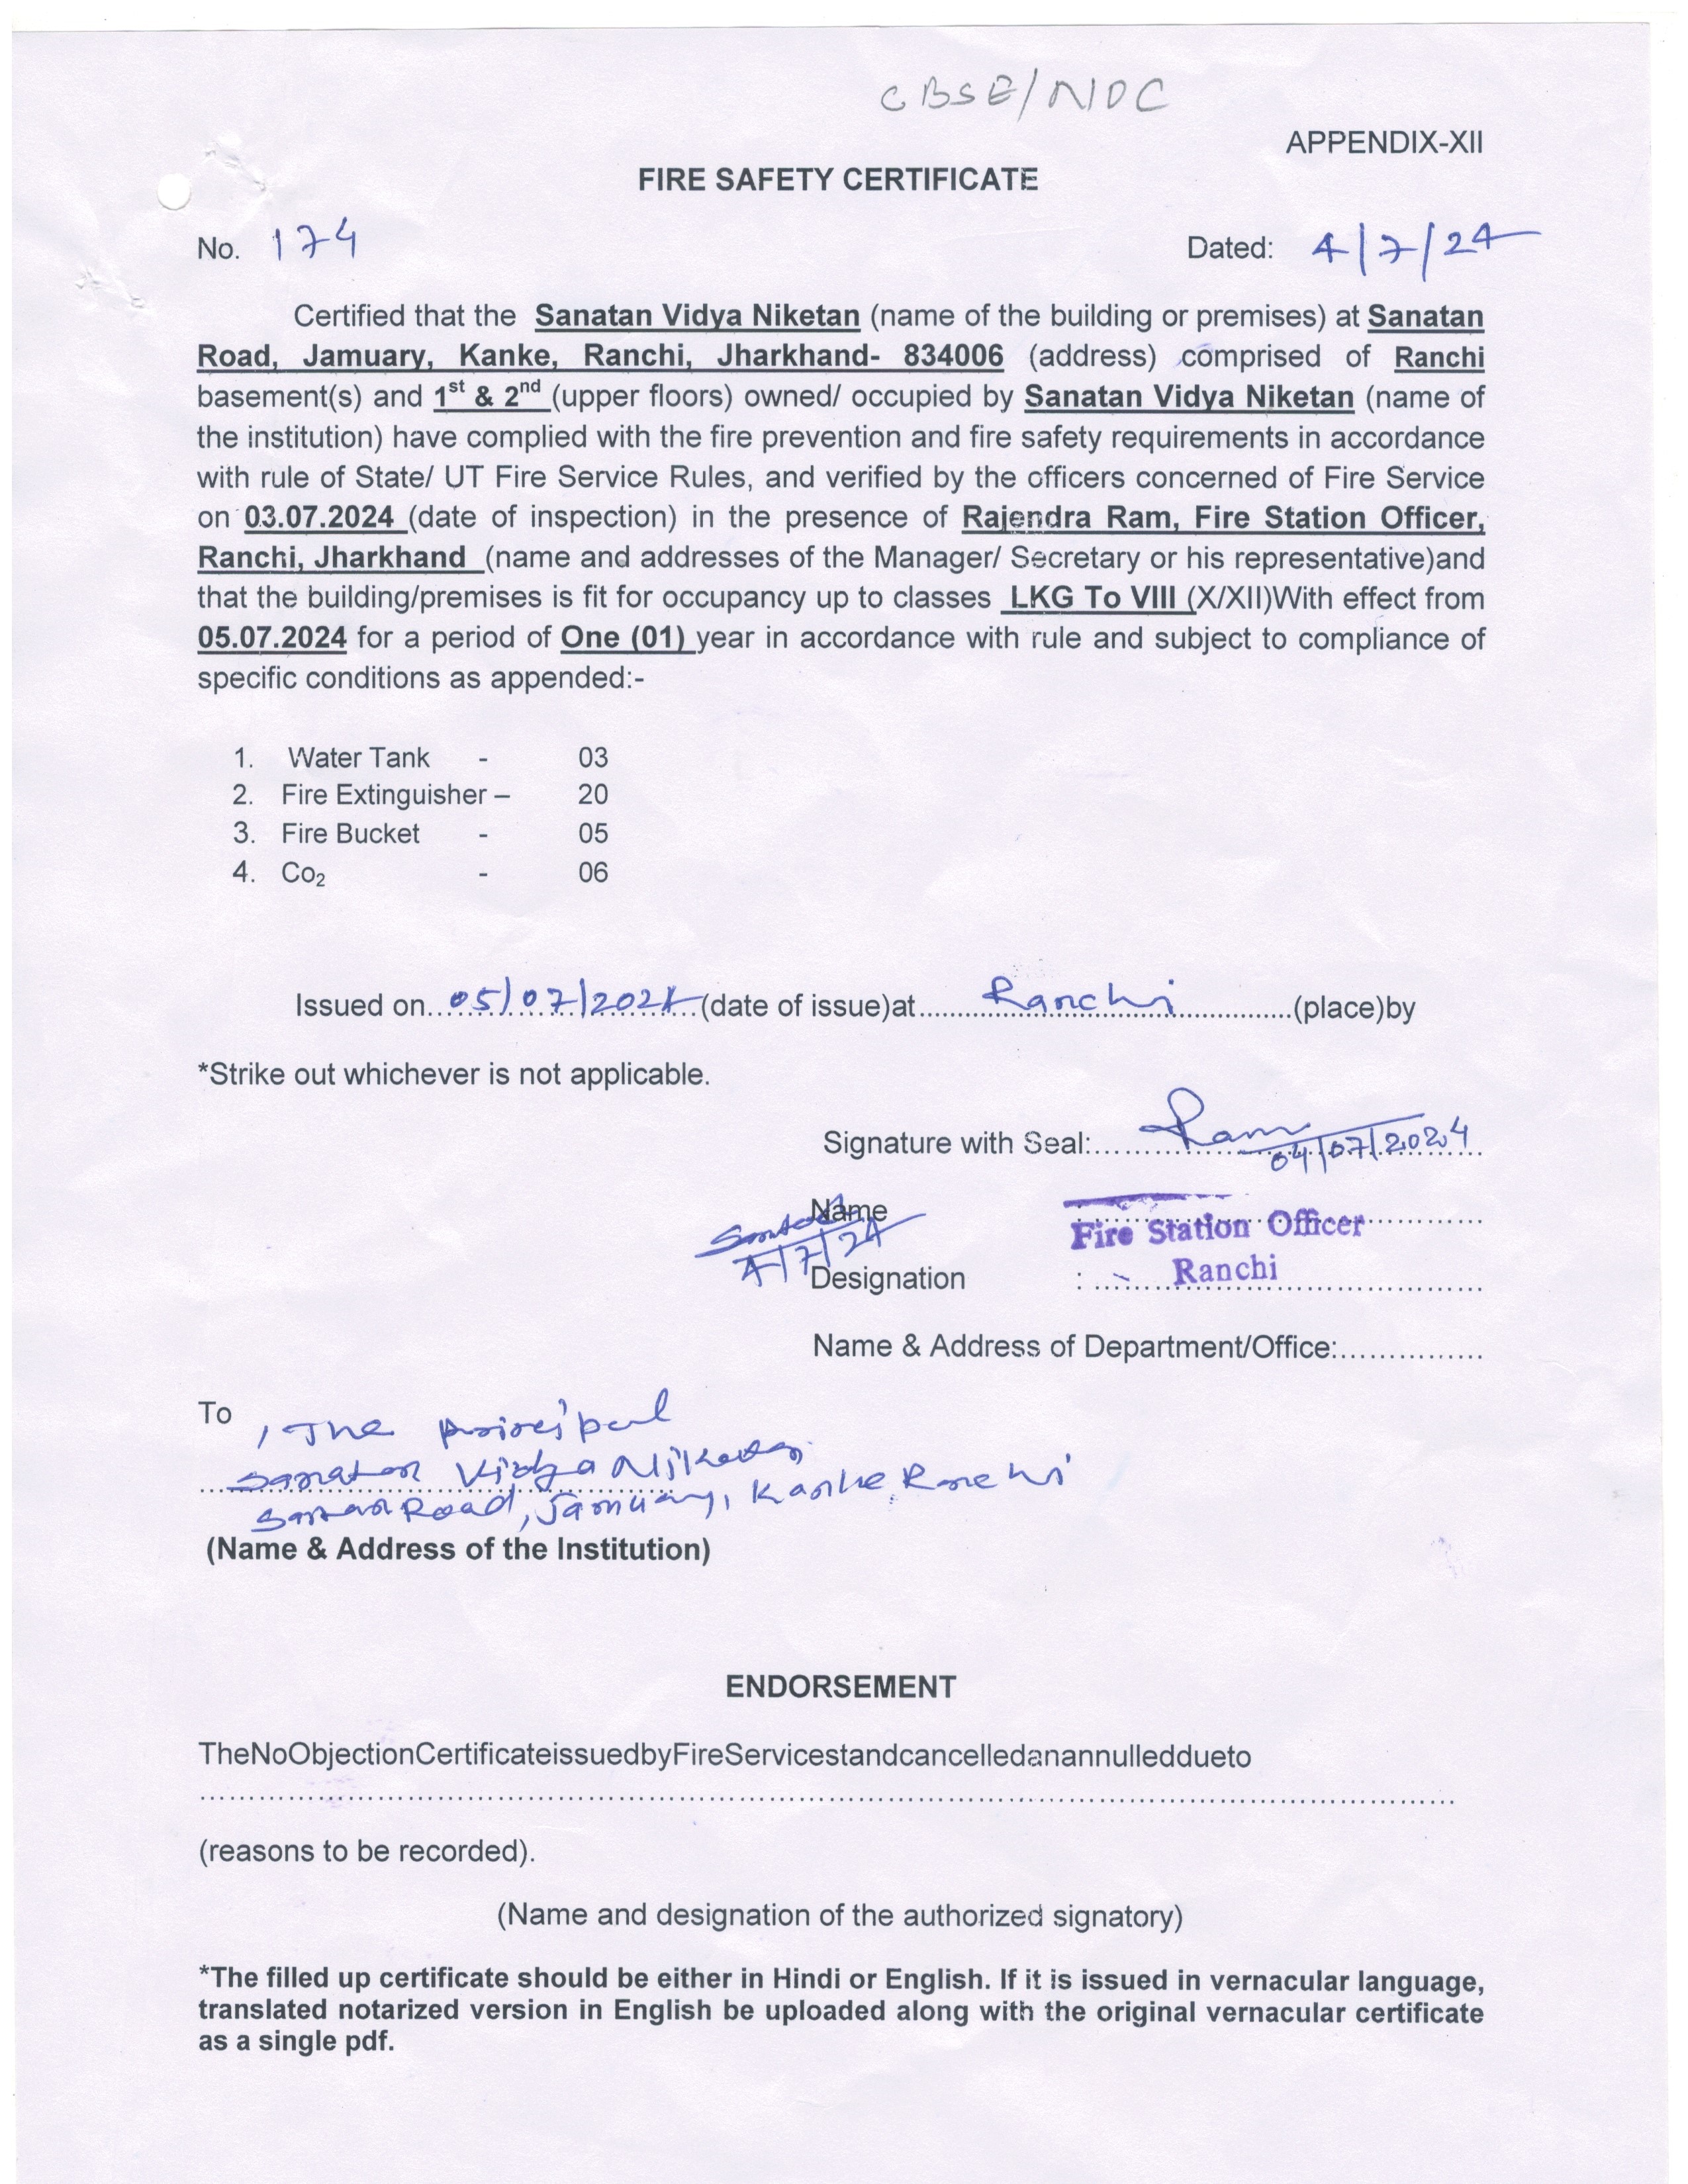 CBSE/NOC
APPENDIX-XII
FIRE SAFETY CERTIFICATE
No. 174 Dated: 4/7/24
Certified that the Sanatan Vidya Niketan (name of the building or premises) at Sanatan
Road, Jamuary, Kanke, Ranchi, Jharkhand- 834006 (address) comprised of Ranchi
basement(s) and 1st & 2nd (upper floors) owned/ occupied by Sanatan Vidya Niketan (name of
the institution) have complied with the fire prevention and fire safety requirements in accordance
with rule of State/ UT Fire Service Rules, and verified by the officers concerned of Fire Service
on 03.07.2024 (date of inspection) in the presence of Rajendra Ram, Fire Station Officer,
Ranchi, Jharkhand (name and addresses of the Manager/ Secretary or his representative)and
that the building/premises is fit for occupancy up to classes LKG To VIII (X/XII)With effect from
05.07.2024 for a period of One (01) year in accordance with rule and subject to compliance of
specific conditions as appended:-
1. Water Tank - 03
2. Fire Extinguisher – 20
3. Fire Bucket - 05
4. Co₂ - 06
Issued on 05/07/2024 (date of issue)at Ranchi (place)by
*Strike out whichever is not applicable.
Signature with Seal: Ram 04/07/2024
Name
4/7/24
Fire Station Officer
Designation : Ranchi
Name & Address of Department/Office:...............
To , The Principal
Sanatan Vidya Niketan
Sanatan Road, Jamuary, Kanke, Ranchi
(Name & Address of the Institution)
ENDORSEMENT
TheNoObjectionCertificateissuedbyFireServicestandcancelledanannulleddueto
(reasons to be recorded).
(Name and designation of the authorized signatory)
*The filled up certificate should be either in Hindi or English. If it is issued in vernacular language,
translated notarized version in English be uploaded along with the original vernacular certificate
as a single pdf.